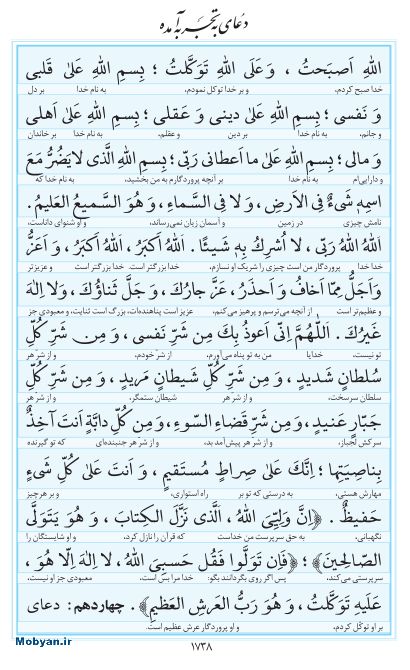 دعای به تجربه آمده
اللهِ اَصبَحتُ ، وَ عَلَی اللهِ تَوَکَّلتُ ؛ بِسمِ اللهِ عَلیٰ قَلبی
خدا صبح کردم، و بر خدا توکل نمودم، به نام خدا بر دل
وَ نَفسی ؛ بِسمِ اللهِ عَلیٰ دینی وَ عَقلی ؛ بِسمِ اللهِ عَلیٰ اَهلی
و جانم، به نام خدا بر دین و عقلم، به نام خدا بر خاندان
وَ مالی ؛ بِسمِ اللهِ عَلیٰ ما اَعطانی رَبّی ؛ بِسمِ اللهِ الَّذی لا یَضُرُّ مَعَ
و دارایی‌ام به نام خدا بر آنچه پروردگارم به من بخشید، به نام خدا که
اسمِهٖ شَیءٌ فِی الاَرضِ ، وَ لا فِی السَّماءِ ، وَ هُوَ السَّمیعُ العَلیمُ .
نامش چیزی در زمین و آسمان زیان نمی‌رساند، و او شنوای داناست،
اَللهُ اللهُ رَبّی ، لا اُشرِکُ بِهٖ شَیئًا . اَللهُ اَکبَرُ ، اَللهُ اَکبَرُ ، وَ اَعَزُّ
خدا خدا پروردگار من است چیزی را شریک او نسازم، خدا بزرگتر است. خدا بزرگتر است و عزیزتر
وَ اَجَلُّ مِمّا اَخافُ وَ اَحذَرُ ، عَزَّ جارُکَ ، وَ جَلَّ ثَناؤُکَ ، وَ لا اِلٰهَ
و عظیم‌تر است از آنچه می‌ترسم و پرهیز می‌کنم، عزیز است پناهنده‌ات، بزرگ است ثنایت، و معبودی جز
غَیرُکَ . اَللّٰهُمَّ اِنّی اَعوذُ بِکَ مِن شَرِّ نَفسی ، وَ مِن شَرِّ کُلِّ
تو نیست، خدایا من به تو پناه می‌آورم، از شرّ خودم، و از شرّ هر
سُلطانٍ شَدیدٍ ، وَ مِن شَرِّ کُلِّ شَیطانٍ مَریدٍ ، وَ مِن شَرِّ کُلِّ
سلطان سرسخت، و از شرّ هر شیطان ستمگر، و از شرّ هر
جَبّارٍ عَنیدٍ ، وَ مِن شَرِّ قَضاءِ السَّوءِ ، وَ مِن کُلِّ دابَّةٍ اَنتَ آخِذٌ
سرکش لجباز، و از شرّ هر پیش‌آمد بد، و از شرّ هر جنبنده‌ای که تو گیرنده
بِناصِیَتِها ؛ اِنَّکَ عَلیٰ صِراطٍ مُستَقیمٍ ، وَ اَنتَ عَلیٰ کُلِّ شَیءٍ
مهارش هستی، به درستی که تو بر راه استواری، و بر هر چیز
حَفیظٌ . ﴿اِنَّ وَلِیِّیَ اللهُ ، الَّذی نَزَّلَ الکِتابَ ، وَ هُوَ یَتَوَلَّی
نگهبانی، به حق سرپرست من خداست که قرآن را نازل کرد، و او شایستگان را
الصّالِحینَ﴾ ؛ ﴿فَاِن تَوَلَّوا فَقُل حَسبِیَ اللهُ ، لا اِلٰهَ اِلّا هُوَ ،
سرپرستی می‌کند، پس اگر روی بگردانند بگو: خدا مرا بس است، معبودی جز او نیست،
عَلَیهِ تَوَکَّلتُ ، وَ هُوَ رَبُّ العَرشِ العَظیمِ﴾ . چهاردهم: دعای
بر او توکل کردم، و او پروردگار عرش عظیم است.
Mobyan.ir
۱۷۳۸